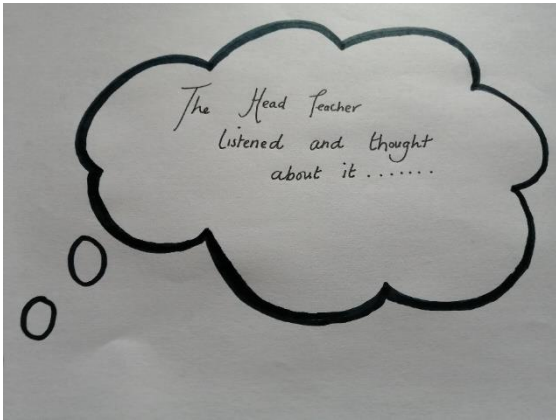 The Head Teacher
listened and thought
about it .......